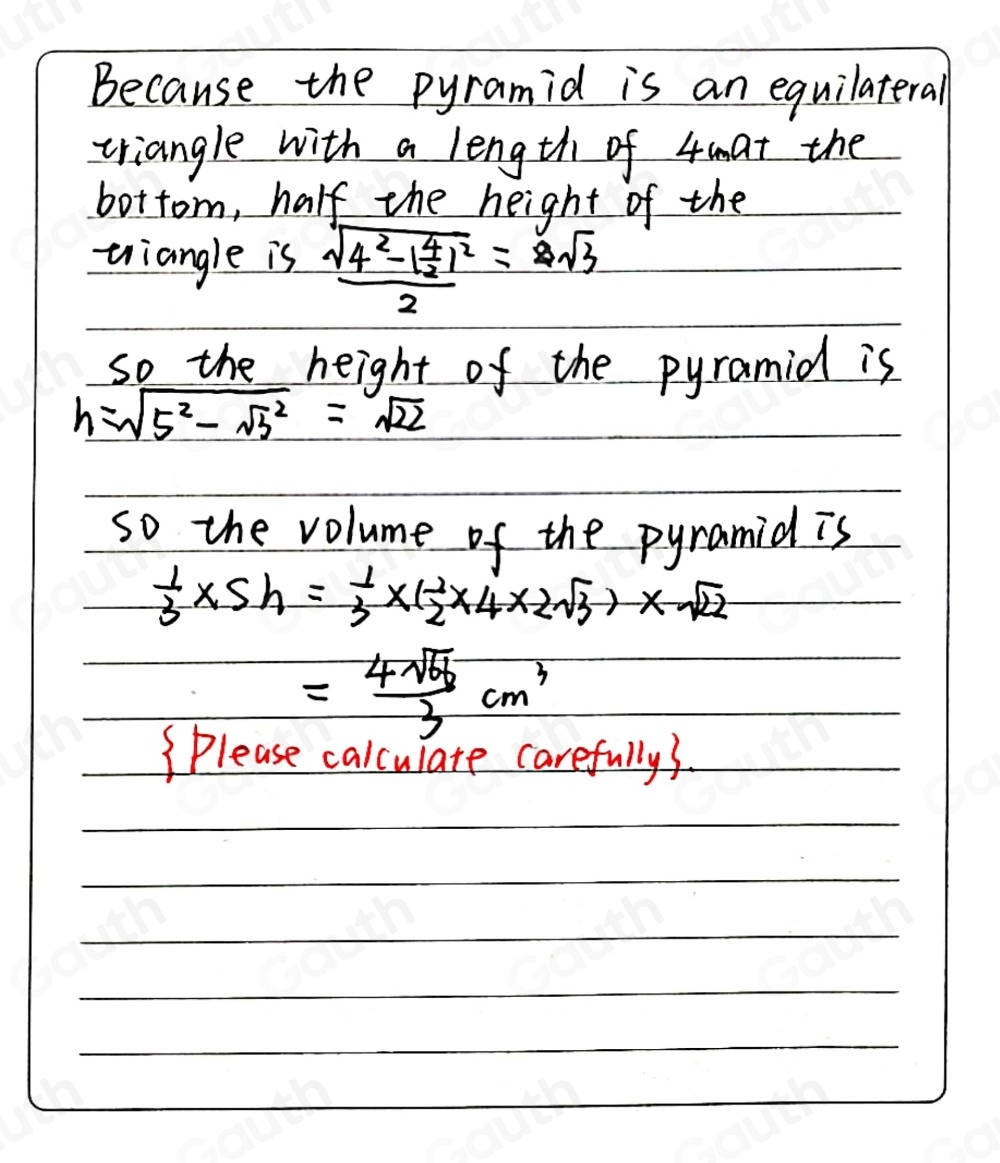 Because the pyramid is an equilateral
triangle with a length of 4cm at the
bottom, half the height of the
triangle is √(4² - (4/2)²) / 2 = √3
so the height of the pyramid is
h = √(5² - √3²) = √22
so the volume of the pyramid is
1/3 × Sh = 1/3 × (1/2 × 4 × 2√3) × √22
= 4√66 / 3 cm³
{Please calculate carefully}.